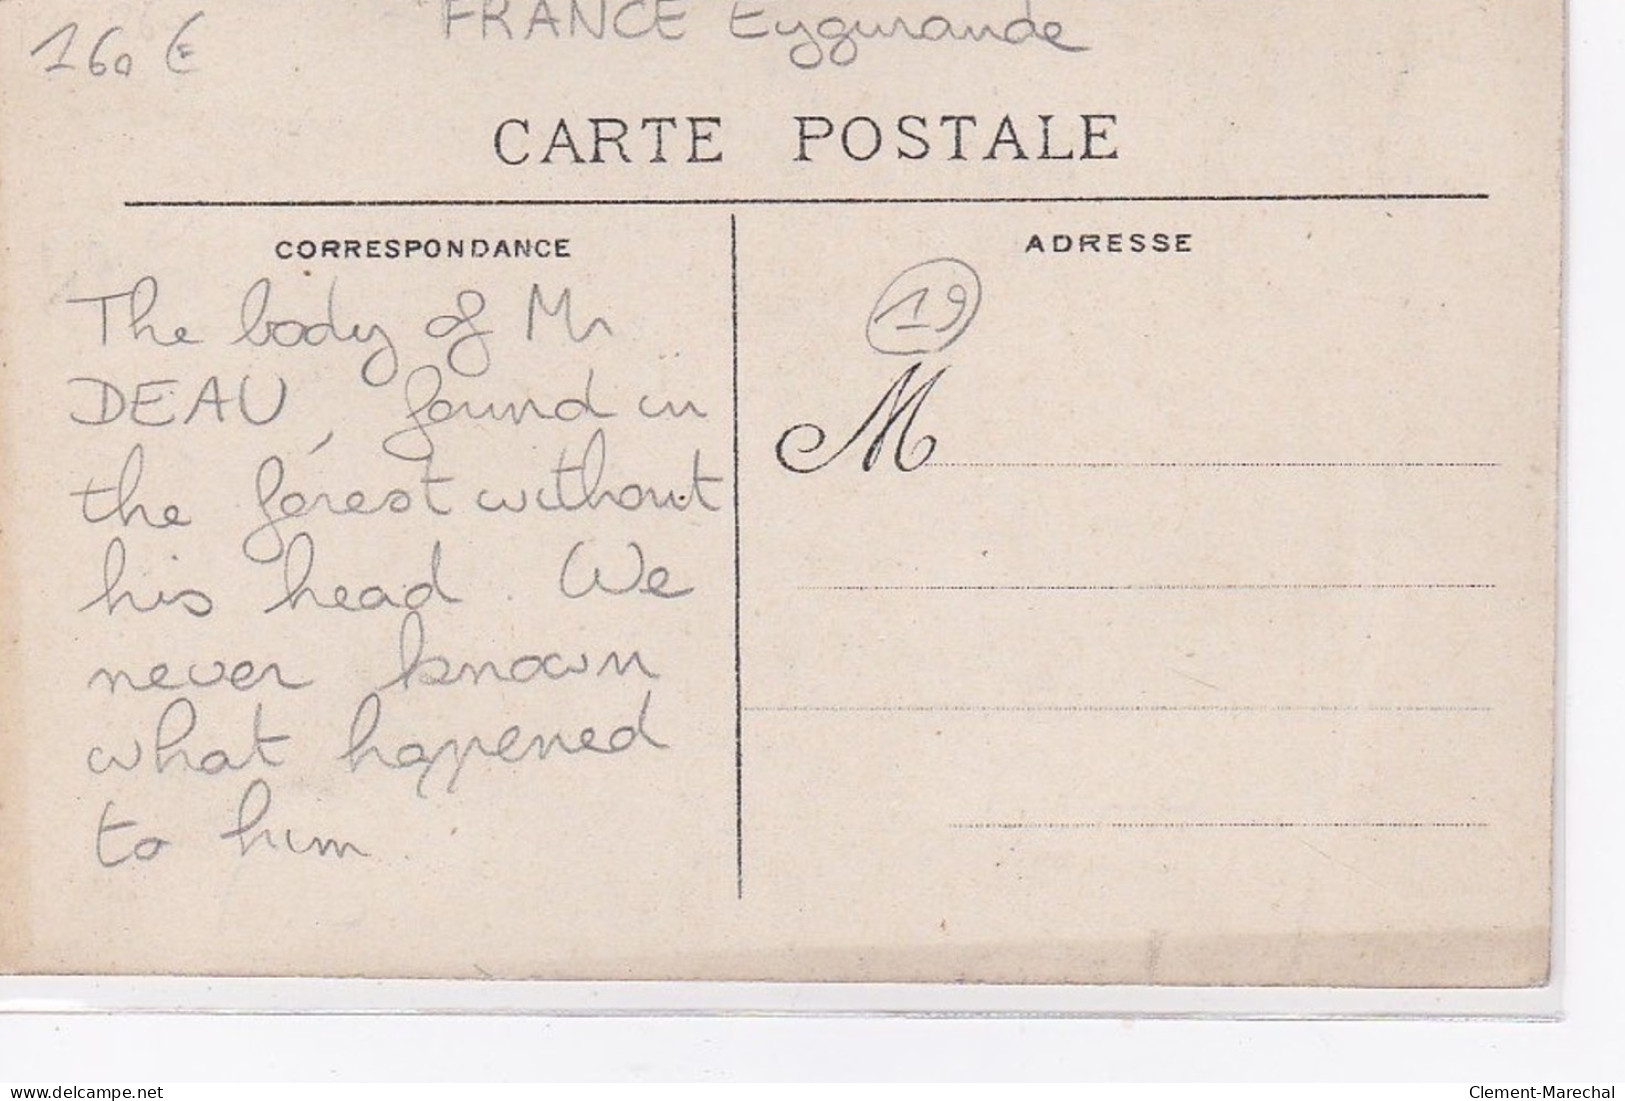 160 €
FRANCE Eygurande
CARTE POSTALE
CORRESPONDANCE
The body of Mr
DEAU, found in
the forest without
his head. We
never known
what happened
to him.
ADRESSE
19
M
www.delcampe.net
Clement-Marechal